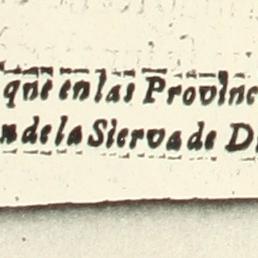 que en las Provinc
n de la Sierva de D